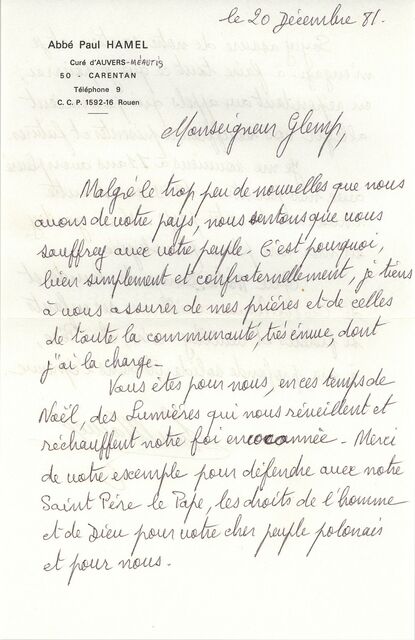 le 20 Décembre 81.
Abbé Paul HAMEL
Curé d'AUVERS-MÉAUTIS
50 - CARENTAN
Téléphone 9
C. C. P. 1592-16 Rouen
Monseigneur Glemp,
Malgré le trop peu de nouvelles que nous
avons de votre pays, nous sentons que vous
souffrez avec votre peuple. C'est pourquoi,
bien simplement et confraternellement, je tiens
à vous assurer de mes prières et de celles
de toute la communauté, très émue, dont
j'ai la charge -
Vous êtes pour nous, en ces temps de
Noël, des Lumières qui nous réveillent et
réchauffent notre foi - Merci
de votre exemple pour défendre avec notre
Saint Père le Pape, les droits de l'homme
et de Dieu pour votre cher peuple polonais
et pour nous.